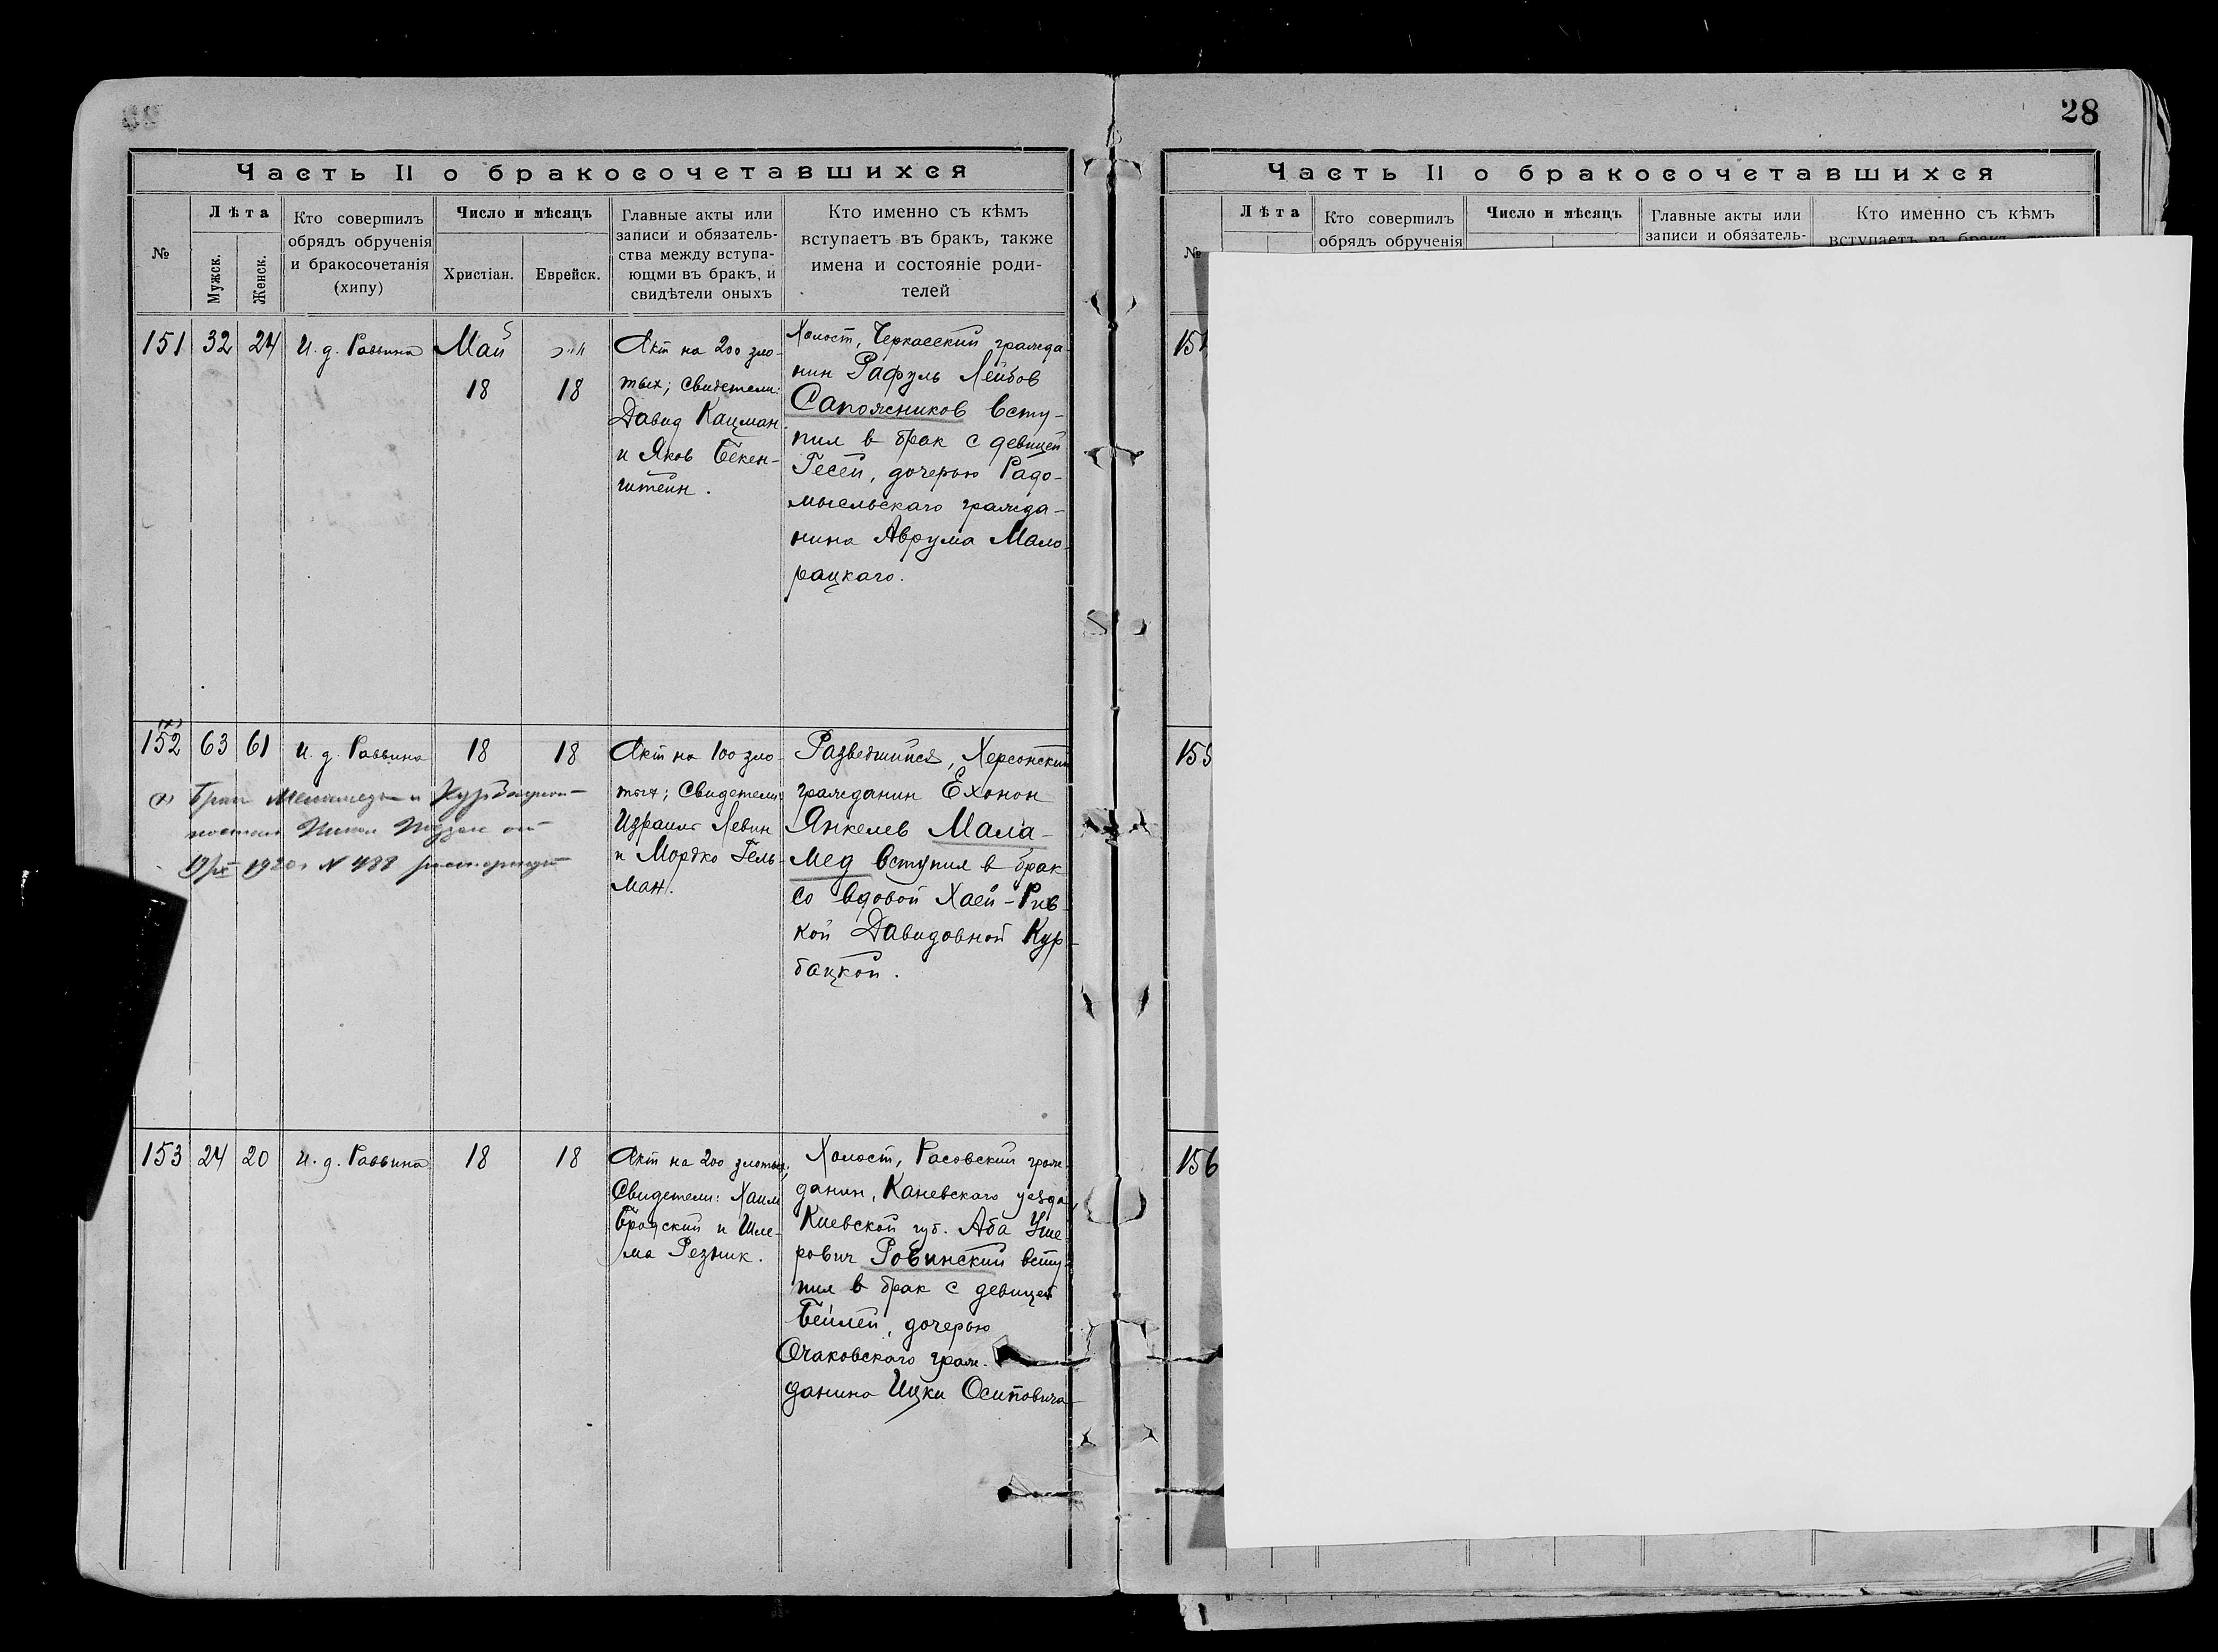 28
Часть II о бракосочетавшихся
№
Лѣта
Мужск.
Женск.
Кто совершилъ
обрядъ обрученія
и бракосочетанія
(хипу)
Число и мѣсяцъ
Христіан.
Еврейск.
Главные акты или
записи и обязатель-
ства между вступа-
ющми въ бракъ, и
свидѣтели оныхъ
Кто именно съ кѣмъ
вступаетъ въ бракъ, также
имена и состояніе роди-
телей
151 32 24 И. д. Раввина
Май
18
18
Акт на 200 зло-
тых; свидетели:
Давид Кацман
и Яков Бекен-
штейн.
Холост, Черкасский гражда-
нин Рафуль Лейбов
Сапожников всту-
пил в брак с девицей
Гесей, дочерью Радо-
мысльскаго гражда-
нина Аврума Мало-
рацкаго.
152 63 61 И. д. Раввина 18 18
Акт на 100 зло-
тых; Свидетели:
Израиль Левин
и Мордко Гель-
ман.
Разведшийся, Херсонский
гражданин Ехонон
Янкелев Мала-
мед вступил в брак
со вдовой Хаей-Рив-
кой Давидовной Кур-
бацкой.
(х) Брак
1920 N 488
153 24 20 И. д. Раввина 18 18
Акт на 200 злотых;
Свидетели: Хаим
Бродский и Шле-
ма Резник.
Холост, Расовский граж-
данин, Каневского уезда,
Киевской губ. Аба Уше-
рович Ровинский всту-
пил в брак с девицей
Бейлей, дочерью
Очаковского граж-
данина Ицки Осиповича
Часть II о бракосочетавшихся
№
Лѣта
Кто совершилъ
обрядъ обрученія
Число и мѣсяцъ
Главные акты или
записи и обязатель-
Кто именно съ кѣмъ
вступаетъ въ бракъ,
15
155
156